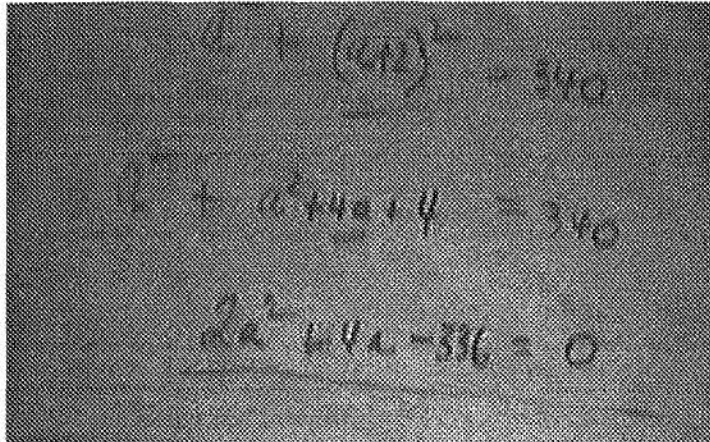 a² + (a+2)² = 340
a² + a²+4a+4 = 340
2a² + 4a - 336 = 0